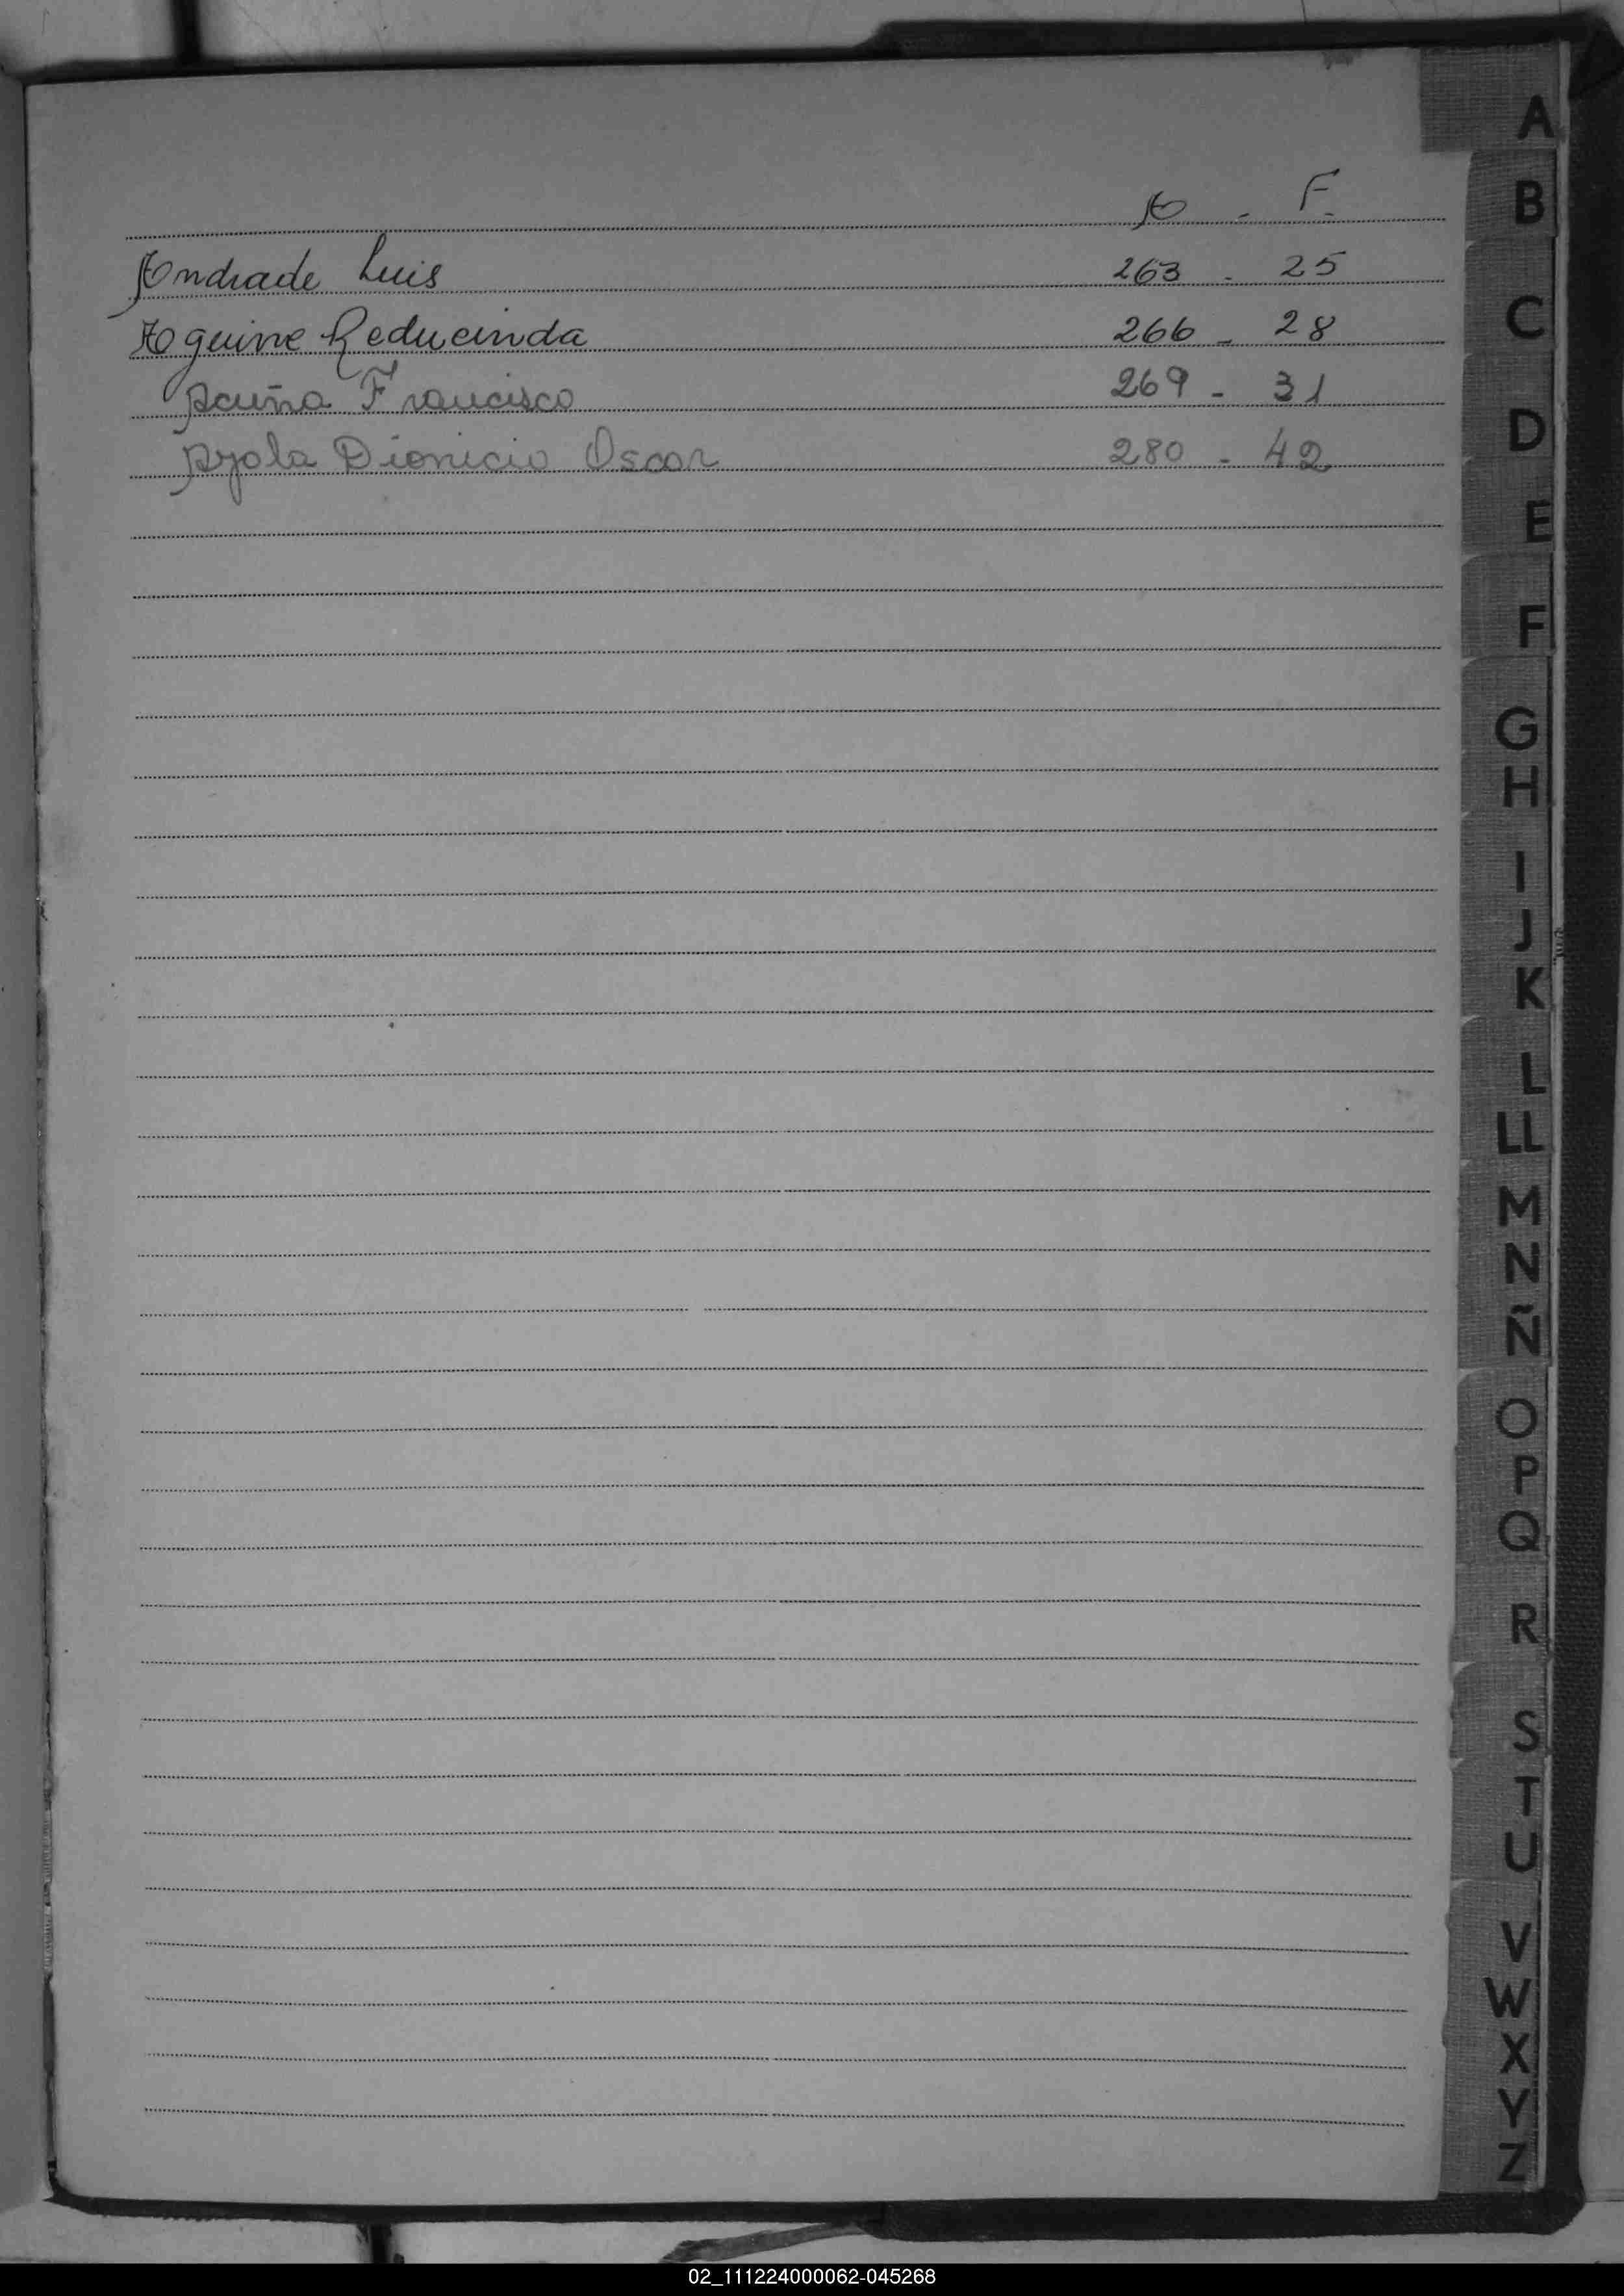 A - F.
Andrade Luis 263 - 25
Aguirre Reducinda 266 - 28
Acuña Francisco 269 - 31
Ayala Dionicio Oscar 280 - 42
A
B
C
D
E
F
G
H
I
J
K
L
LL
M
N
Ñ
O
P
Q
R
S
T
U
V
W
X
Y
Z
02_111224000062-045268